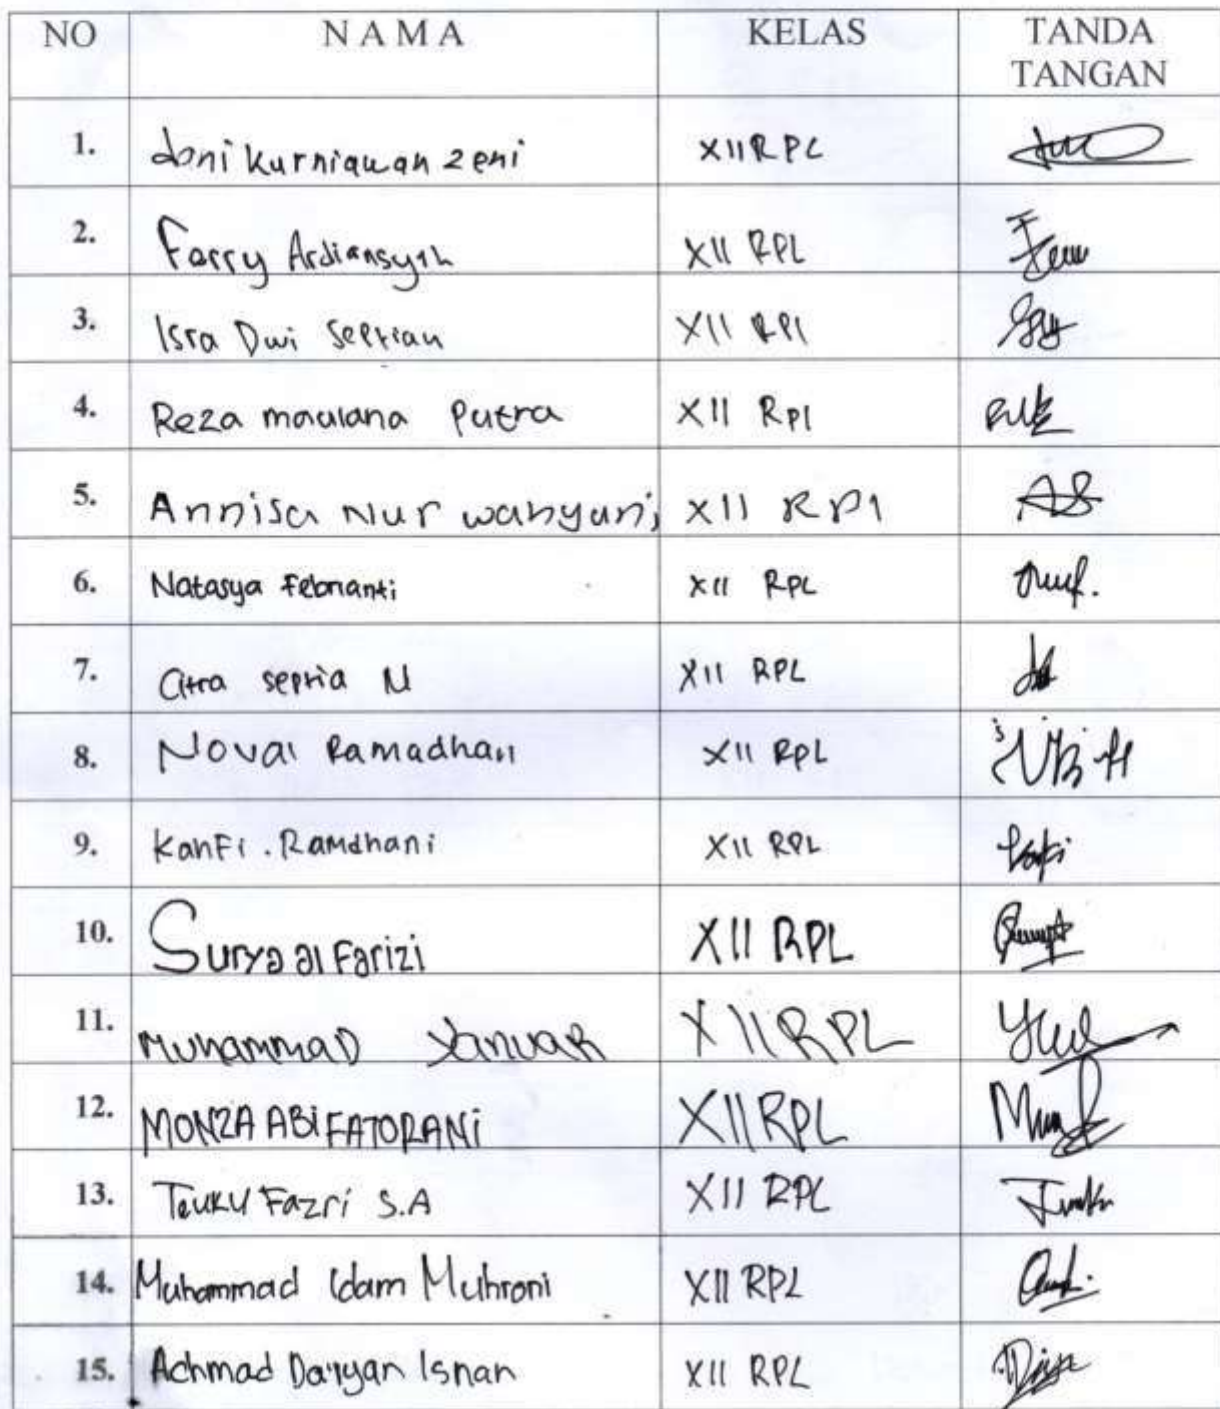 NO NAMA KELAS TANDA TANGAN
1. doni kurniawan zeni XII RPL
2. Ferry Ardiansyah XII RPL
3. Isra Dwi Septian XII RPl
4. Reza maulana Putra XII Rpl
5. Annisa Nur wahyuni XII RPl
6. Natasya Febrianti XII RPL
7. Citra septia N XII RPL
8. Noval Ramadhan XII RPL
9. KanFi . Ramdhani XII RPL
10. Surya al Farizi XII RPL
11. MuhammaD YanuaR XII RPL
12. MONZA ABI FATORANi XII RPL
13. Teuku Fazri S.A XII RPL
14. Muhammad Idam Muhroni XII RPL
15. Achmad Daryan Isnan XII RPL